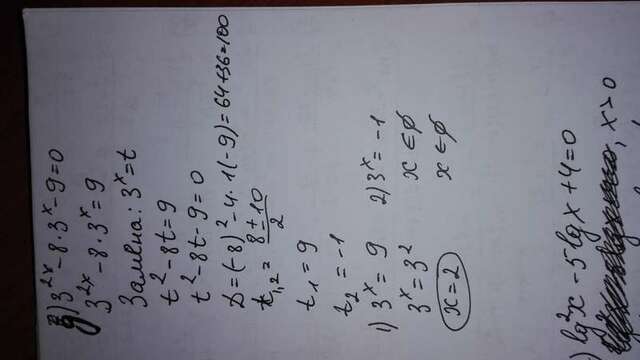 д) 3^{2x} - 8·3^x - 9 = 0
3^{2x} - 8·3^x = 9
Замена: 3^x = t
t^2 - 8t = 9
t^2 - 8t - 9 = 0
D = (-8)^2 - 4·1(-9) = 64 + 36 = 100
t_{1,2} = \frac{8 ± 10}{2}
t_1 = 9
t_2 = -1
1) 3^x = 9 2) 3^x = -1
3^x = 3^2 x ∈ ∅
x = 2 x ∈ ∅
) lg^2 x - 5 lg x + 4 = 0
, x > 0